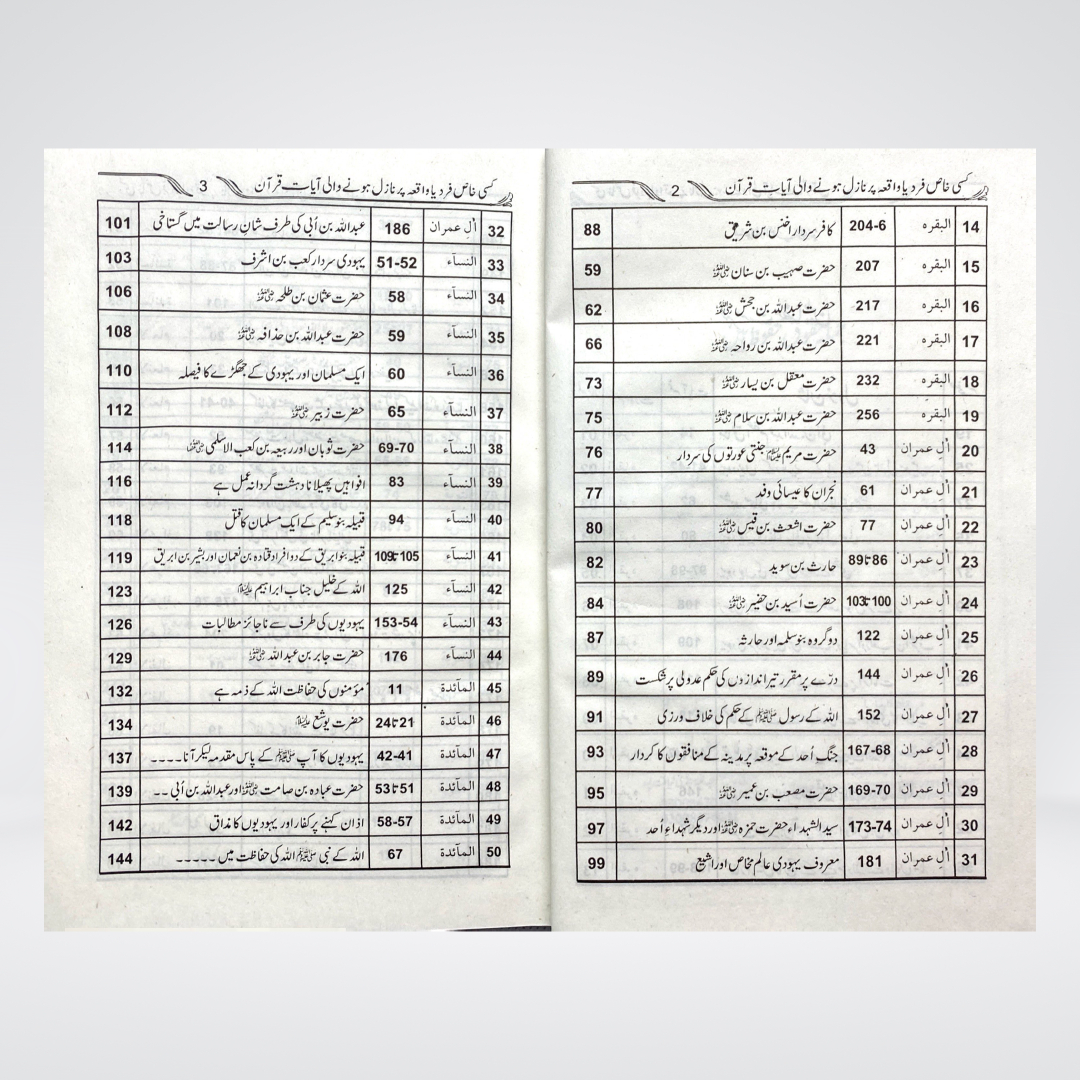 کسی خاص فرد یا واقعہ پر نازل ہونے والی آیات قرآن 2
14 البقرہ 204-6 کافر سردار اخنس بن شریق 88
15 البقرہ 207 حضرت صہیب بن سنان رضی اللہ عنہ 59
16 البقرہ 217 حضرت عبداللہ بن جحش رضی اللہ عنہ 62
17 البقرہ 221 حضرت عبداللہ بن رواحہ رضی اللہ عنہ 66
18 البقرہ 232 حضرت معقل بن یسار رضی اللہ عنہ 73
19 البقرہ 256 حضرت عبداللہ بن سلام رضی اللہ عنہ 75
20 اٰلِ عمران 43 حضرت مریم علیہا السلام جنتی عورتوں کی سردار 76
21 اٰلِ عمران 61 نجران کا عیسائی وفد 77
22 اٰلِ عمران 77 حضرت اشعث بن قیس رضی اللہ عنہ 80
23 اٰلِ عمران 86تا89 حارث بن سوید 82
24 اٰلِ عمران 100تا103 حضرت اُسید بن حضیر رضی اللہ عنہ 84
25 اٰلِ عمران 122 دو گروہ بنوسلمہ اور حارثہ 87
26 اٰلِ عمران 144 درّے پر مقرر تیر اندازوں کی حکم عدولی پر شکست 89
27 اٰلِ عمران 152 اللہ کے رسول ﷺ کے حکم کی خلاف ورزی 91
28 اٰلِ عمران 167-68 جنگِ اُحد کے موقعہ پر مدینہ کے منافقوں کا کردار 93
29 اٰلِ عمران 169-70 حضرت مصعب بن عمیر رضی اللہ عنہ 95
30 اٰلِ عمران 173-74 سید الشہداء حضرت حمزہ رضی اللہ عنہ اور دیگر شہداءِ اُحد 97
31 اٰلِ عمران 181 معروف یہودی عالم مخاص اور اشیع 99
کسی خاص فرد یا واقعہ پر نازل ہونے والی آیات قرآن 3
32 اٰلِ عمران 186 عبداللہ بن اُبی کی طرف شانِ رسالت میں گستاخی 101
33 النسآء 51-52 یہودی سردار کعب بن اشرف 103
34 النسآء 58 حضرت عثمان بن طلحہ رضی اللہ عنہ 106
35 النسآء 59 حضرت عبداللہ بن حذافہ رضی اللہ عنہ 108
36 النسآء 60 ایک مسلمان اور یہودی کے جھگڑے کا فیصلہ 110
37 النسآء 65 حضرت زبیر رضی اللہ عنہ 112
38 النسآء 69-70 حضرت ثوبان اور ربیعہ بن کعب الاسلمی رضی اللہ عنہما 114
39 النسآء 83 افواہیں پھیلانا دہشت گردانہ عمل ہے 116
40 النسآء 94 قبیلہ بنوسلیم کے ایک مسلمان کا قتل 118
41 النسآء 105تا109 قبیلہ بنوابریق کے دو افراد قتادہ بن نعمان اور بشیر بن ابریق 119
42 النسآء 125 اللہ کے خلیل جناب ابراہیم علیہ السلام 123
43 النسآء 153-54 یہودیوں کی طرف سے ناجائز مطالبات 126
44 النسآء 176 حضرت جابر بن عبداللہ رضی اللہ عنہ 129
45 المآئدۃ 11 مؤمنوں کی حفاظت اللہ کے ذمہ ہے 132
46 المآئدۃ 21تا24 حضرت یوشع علیہ السلام 134
47 المآئدۃ 42-41 یہودیوں کا آپ ﷺ کے پاس مقدمہ لیکر آنا۔۔۔۔ 137
48 المآئدۃ 51تا53 حضرت عبادہ بن صامت رضی اللہ عنہ اور عبداللہ بن اُبی ۔۔ 139
49 المآئدۃ 58-57 اذان کہنے پر کفار اور یہودیوں کا مذاق 142
50 المآئدۃ 67 اللہ کے نبی ﷺ اللہ کی حفاظت میں ۔۔۔۔۔ 144